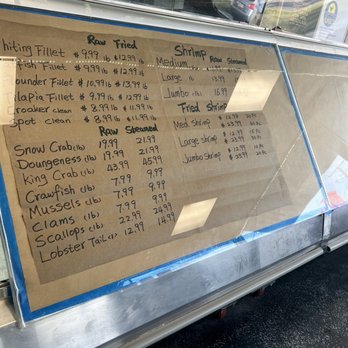 Raw Fried
hiting Fillet $9.99 lb $12.99 lb
Fillet $9.99 lb $12.99 lb
ounder Fillet $10.99 lb $13.99 lb
ilapia Fillet $9.99 lb $12.99 lb
roaker clean $8.99 lb $11.99 lb
Spot clean $8.99 lb $11.99 lb
Raw Steamed
Snow Crab (lb) 19.99 21.99
Doungeness (lb) 19.99 21.99
King Crab (lb) 43.99 45.99
Crawfish (lb) 7.99 9.99
Mussels (lb) 7.99 9.99
Clams (lb) 7.99 9.99
Scallops (lb) 22.99 24.99
Lobster Tail 12.99 14.99
Shrimp
Raw Steamed
Medium
Large lb
Jumbo lb
Fried Shrimp
Med Shrimp
Large Shrimp
Jumbo Shrimp